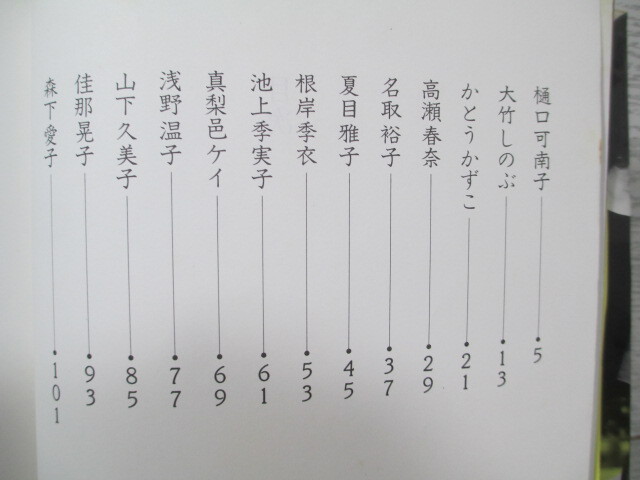 樋口可南子 5
大竹しのぶ 13
かとうかずこ 21
高瀬春奈 29
名取裕子 37
夏目雅子 45
根岸季衣 53
池上季実子 61
真梨邑ケイ 69
浅野温子 77
山下久美子 85
佳那晃子 93
森下愛子 101